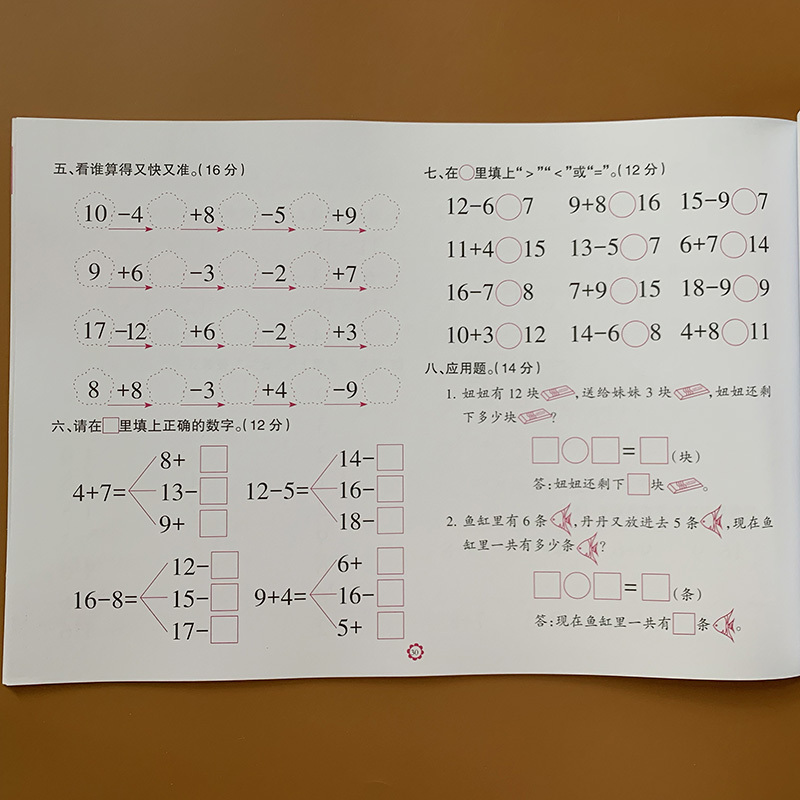 五、看谁算得又快又准。(16分)
10 −4 +8 −5 +9
9 +6 −3 −2 +7
17 −12 +6 −2 +3
8 +8 −3 +4 −9
六、请在□里填上正确的数字。(12分)
8+□
4+7= 13−□
9+□
14−□
12−5= 16−□
18−□
12−□
16−8= 15−□
17−□
6+□
9+4= 16−□
5+□
七、在○里填上“>”“<”或“=”。(12分)
12−6○7 9+8○16 15−9○7
11+4○15 13−5○7 6+7○14
16−7○8 7+9○15 18−9○9
10+3○12 14−6○8 4+8○11
八、应用题。(14分)
1. 妞妞有12块,送给妹妹3块,妞妞还剩
下多少块?
□○□=□(块)
答:妞妞还剩下□块。
2. 鱼缸里有6条,丹丹又放进去5条,现在鱼
缸里一共有多少条?
□○□=□(条)
答:现在鱼缸里一共有□条。
30